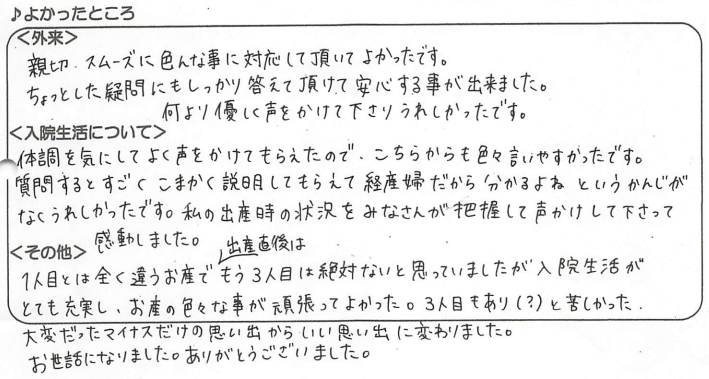 ♪よかったところ
<外来>
親切、スムーズに色んな事に対応して頂いてよかったです。
ちょっとした疑問にもしっかり答えて頂けて安心する事が出来ました。
何より優しく声をかけて下さりうれしかったです。
<入院生活について>
体調を気にしてよく声をかけてもらえたので、こちらからも色々言いやすかったです。
質問するとすごくこまかく説明してもらえて経産婦だから分かるよねというかんじが
なくうれしかったです。私の出産時の状況をみなさんが把握して声かけして下さって
感動しました。
<その他>
出産直後は
1人目とは全く違うお産でもう3人目は絶対ないと思っていましたが入院生活が
とても充実し、お産の色々な事が頑張ってよかった。3人目もあり(?)と苦しかった、
大変だったマイナスだけの思い出からいい思い出に変わりました。
お世話になりました。ありがとうございました。